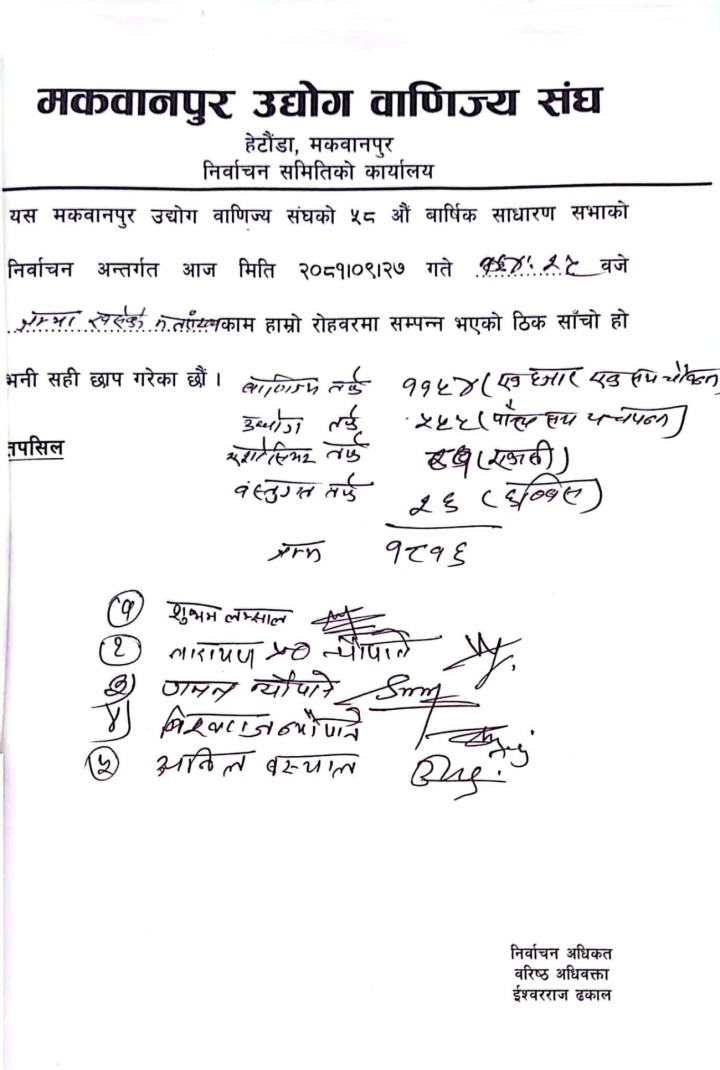 मकवानपुर उद्योग वाणिज्य संघ
हेटौंडा, मकवानपुर
निर्वाचन समितिको कार्यालय
यस मकवानपुर उद्योग वाणिज्य संघको ५८ औं बार्षिक साधारण सभाको
निर्वाचन अन्तर्गत आज मिति २०८१।०९।२७ गते वजे
जम्मा खसेको काम हाम्रो रोहवरमा सम्पन्न भएको ठिक साँचो हो
भनी सही छाप गरेका छौं । वाणिज्य तर्फ ११५४ (एक हजार एक सय चौवन्न)
उद्योग तर्फ ५५५ (पाँच सय पन्चपन्न)
तपसिल एशोसियट तर्फ ८१ (एकासी)
वस्तुगत तर्फ २६ (छब्बिस)
जम्मा १८१६
१ शुभम लम्साल
२ नारायण प्र० न्यौपाने
३) न्यौपाने
४) विश्वराज न्यौपाने
५ अनिल बस्याल
निर्वाचन अधिकत
वरिष्ठ अधिवक्ता
ईश्वरराज ढकाल